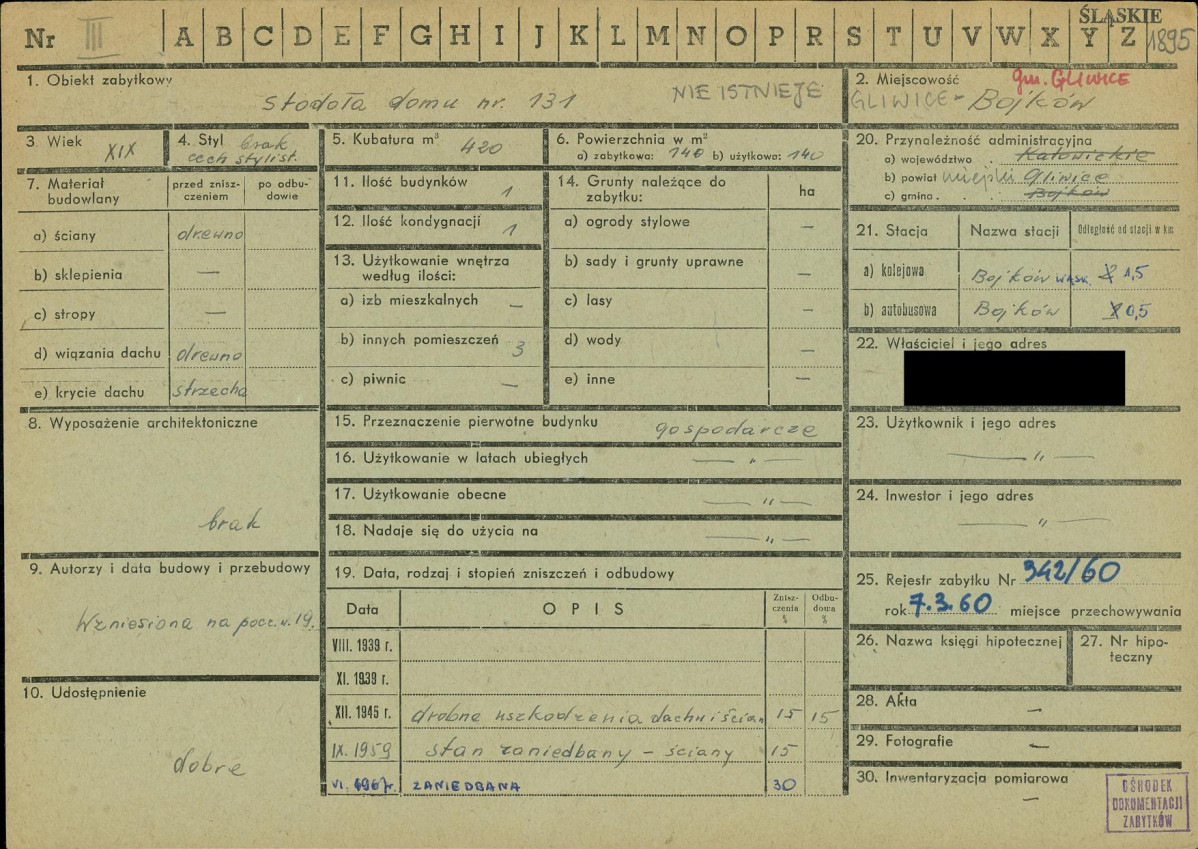 Nr III A B C D E F G H I J K L M N O P R S T U V W X Y Z
ŚLĄSKIE
1895
1. Obiekt zabytkowy
stodoła domu nr. 131
NIE ISTNIEJE
2. Miejscowość
gm. GLIWICE
GLIWICE - Bojków
3. Wiek XIX
4. Styl brak
cech stylist.
5. Kubatura m³ 420
6. Powierzchnia w m²
a) zabytkowa: 140 b) użytkowa: 140
20. Przynależność administracyjna
a) województwo Katowickie
b) powiat miejski Gliwice
c) gmina Bojków
7. Materiał budowlany
przed zniszczeniem
po odbudowie
a) ściany drewno
b) sklepienia —
c) stropy —
d) wiązania dachu drewno
e) krycie dachu strzecha
11. Ilość budynków 1
12. Ilość kondygnacji 1
13. Użytkowanie wnętrza
według ilości:
a) izb mieszkalnych —
b) innych pomieszczeń 3
c) piwnic —
14. Grunty należące do
zabytku:
ha
a) ogrody stylowe —
b) sady i grunty uprawne —
c) lasy —
d) wody —
e) inne —
21. Stacja Nazwa stacji Odległość od stacji w km
a) kolejowa Bojków wąsk. 1,5
b) autobusowa Bojków 0,5
22. Właściciel i jego adres
8. Wyposażenie architektoniczne
brak
15. Przeznaczenie pierwotne budynku gospodarcze
16. Użytkowanie w latach ubiegłych — „ —
17. Użytkowanie obecne — „ —
18. Nadaje się do użycia na — „ —
23. Użytkownik i jego adres
— „ —
24. Inwestor i jego adres
— „ —
9. Autorzy i data budowy i przebudowy
Wzniesiona na pocz. w. 19.
10. Udostępnienie
dobre
19. Data, rodzaj i stopień zniszczeń i odbudowy
Data OPIS Zniszczenia % Odbudowa %
VIII. 1939 r.
XI. 1939 r.
XII. 1945 r. drobne uszkodzenia dachu i ścian 15 15
IX. 1959 stan zaniedbany - ściany 15
VI. 1967r. ZANIEDBANA 30
25. Rejestr zabytku Nr 342/60
rok 7.3.60 miejsce przechowywania
26. Nazwa księgi hipotecznej
27. Nr hipoteczny
28. Akta —
29. Fotografie —
30. Inwentaryzacja pomiarowa
—
OŚRODEK
DOKUMENTACJI
ZABYTKÓW